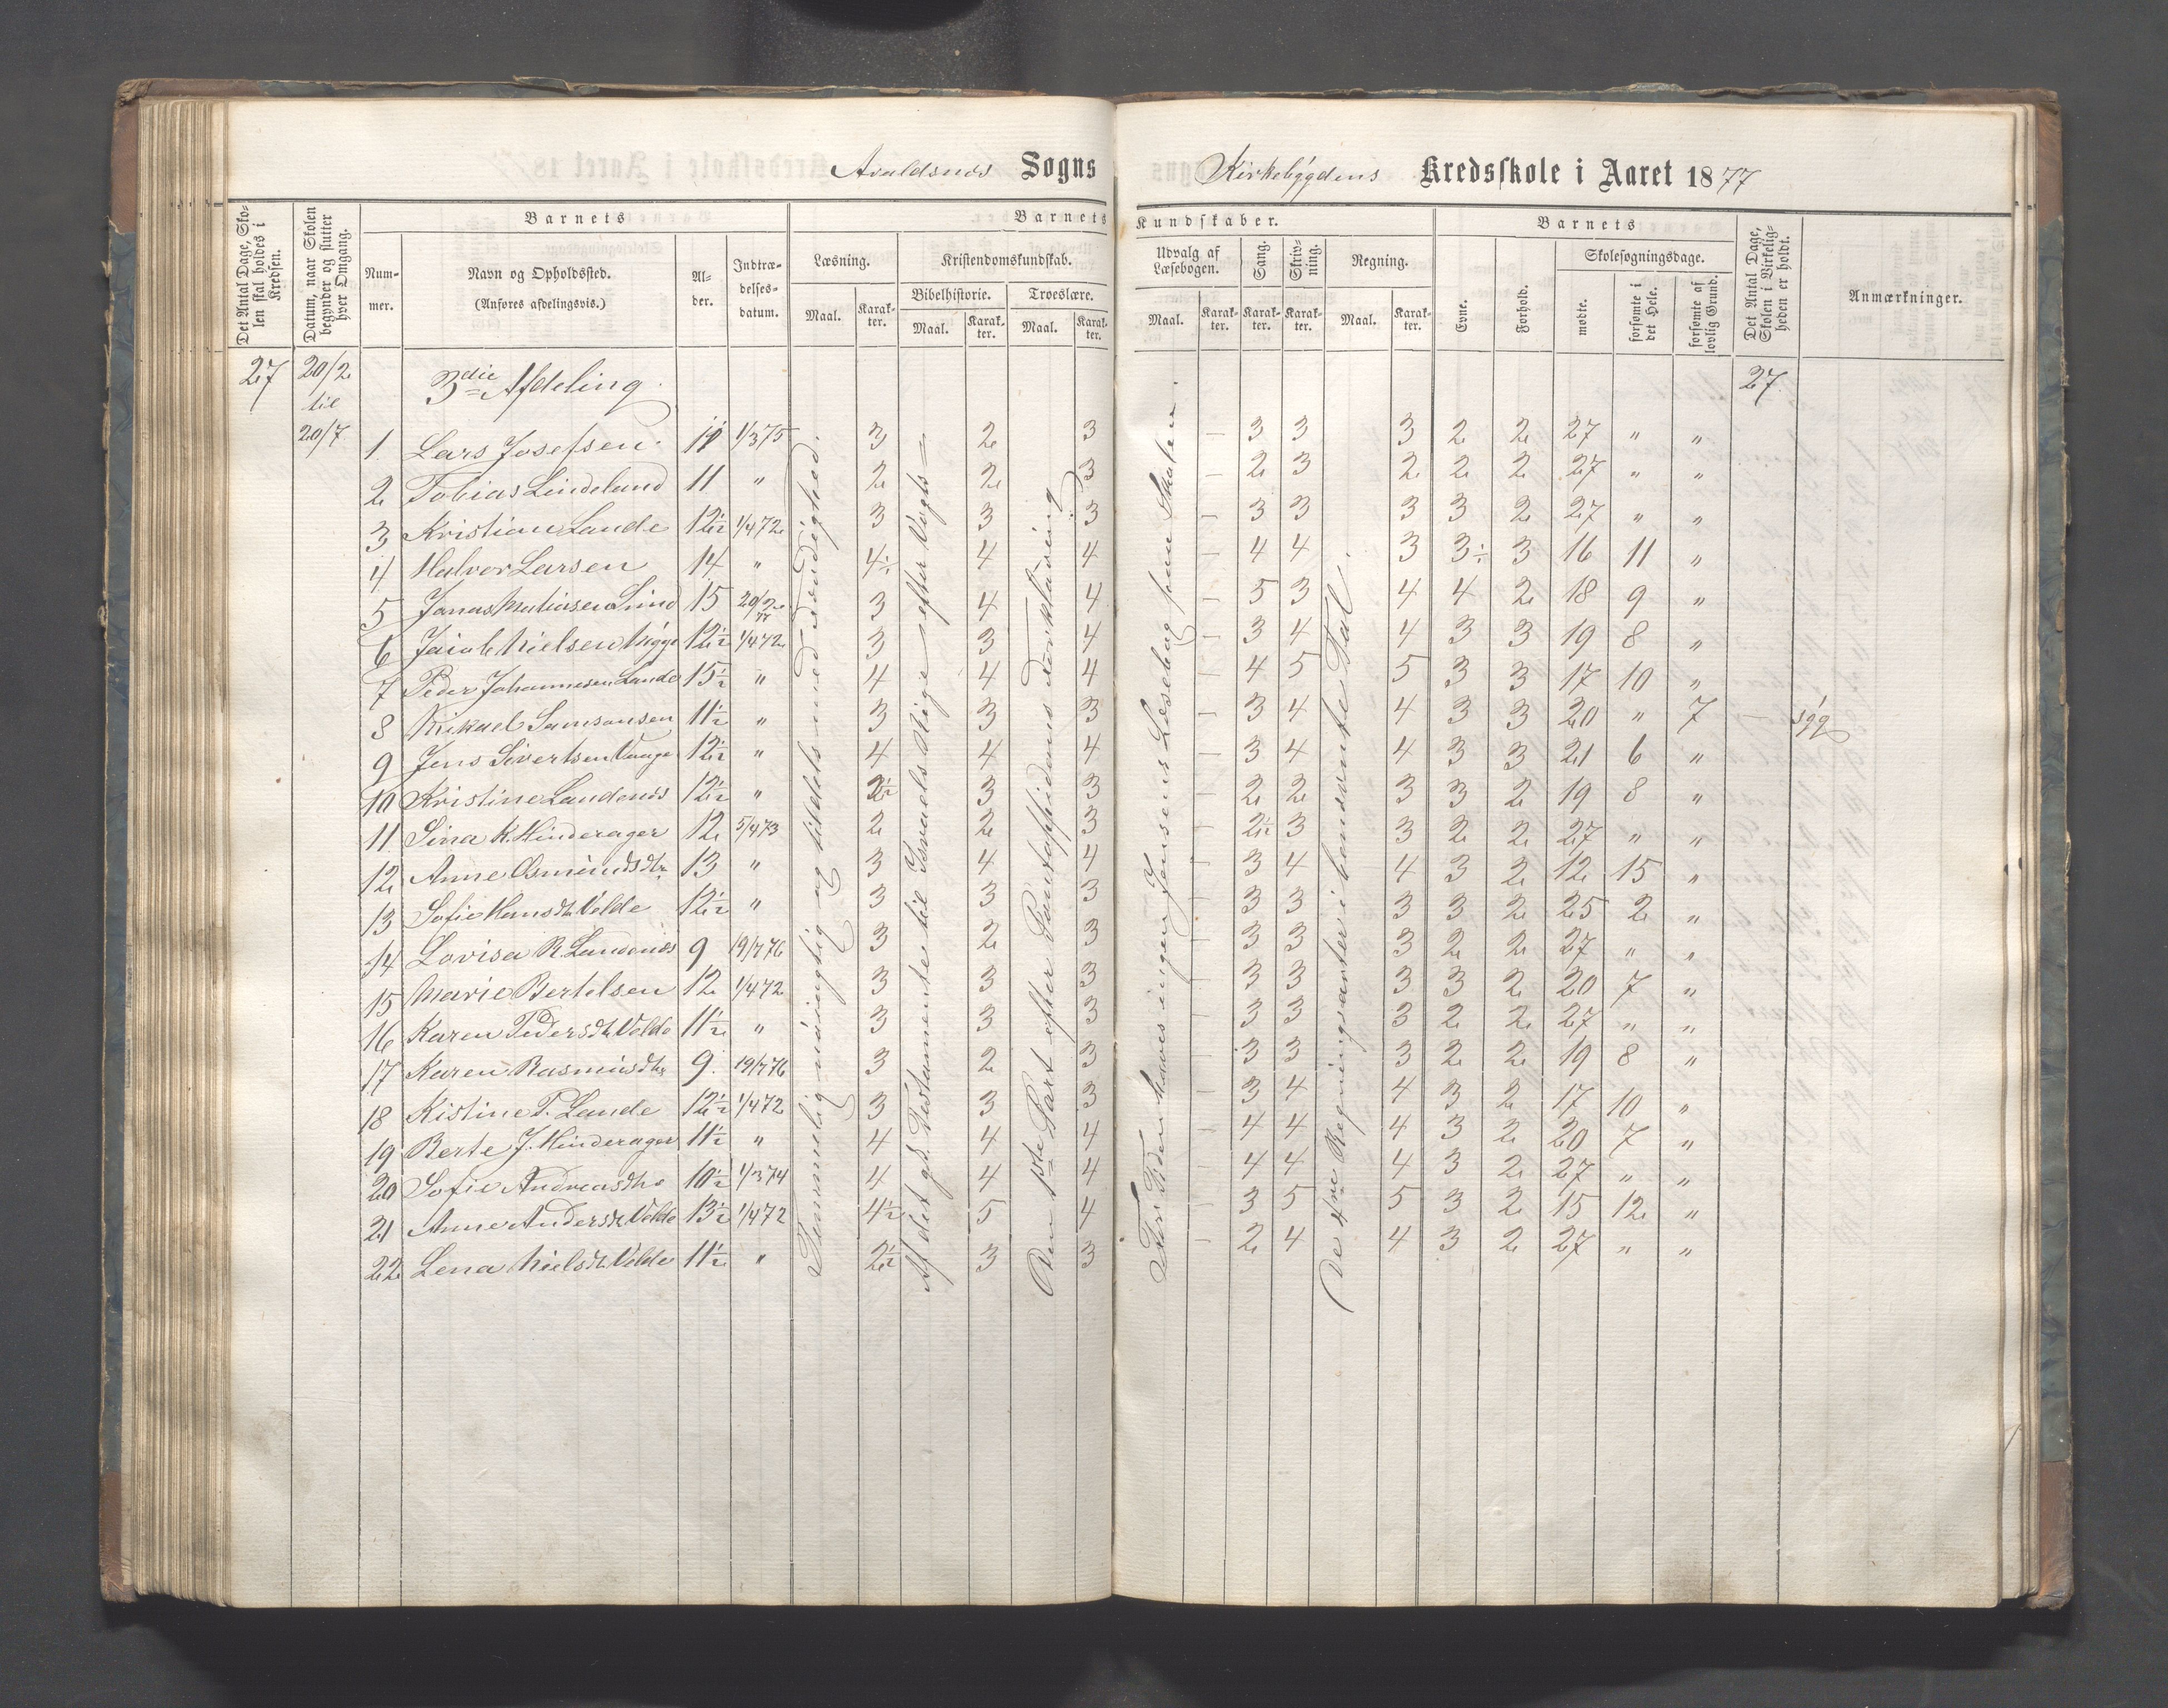 Avaldsnes Sogns Kirkebygdens Kredsskole i Aaret 1877
Det Antal Dage, Skolen skal holdes i Kredsen.
Datum, naar Skolen begynder og slutter hver Omgang.
Barnets
Nummer.
Navn og Opholdssted.
(Anføres afdelingsvis.)
Alder.
Indtrædelsesdatum.
Barnets Kundskaber.
Læsning.
Maal. Karakter.
Kristendomskundskab.
Bibelhistorie. Troeslære.
Maal. Karakter. Maal. Karakter.
Udvalg af Læsebogen.
Maal. Karakter.
Sang. Karakter.
Skrivning. Karakter.
Regning.
Maal. Karakter.
Barnets
Evne. Forhold.
Skolesøgningsdage.
mødte. forsømte i det Hele. forsømte af lovlig Grund.
Det Antal Dage, Skolen i Virkeligheden er holdt.
Anmærkninger.
27 20/2 til 20/7 3die Afdeling. 27
1 Lars Josefsen 11 1/3 75 3 2 3 – 3 3 3 2 2 27 " "
2 Tobias Lindeland 11 " 2 2 3 – 2 3 2 2 2 27 " "
3 Kristian Lande 12½ 1/4 72 3 3 3 – 3 3 3 3 2 27 " "
4 Halvor Larsen 14 " 4÷ 4 4 – 4 4 3 3÷ 3 16 11 "
5 Jonas Matiasen Lund 15 20/2 77 3 4 4 – 5 3 4 4 2 18 9 "
6 Jacob Nielsen 12½ 1/4 72 3 3 4 – 3 4 4 3 3 19 8 "
7 Peder Johannesen Lande 15½ " 4 4 4 – 4 5 5 3 3 17 10 "
8 Mikael Samsonsen 11½ " 3 3 3 – 3 4 4 3 3 20 " 7 – syg
9 Jens Sivertsen Vaage 12½ " 4 4 4 – 3 4 4 3 3 21 6 "
10 Kristine Landenes 12½ " 2½ 3 3 – 2 2 3 3 2 19 8 "
11 Sina K. Hinderager 12 5/4 73 2 2 3 – 2½ 3 3 2 2 27 " "
12 Anne Osmundsdtr 13 " 3 4 4 – 3 4 4 3 2 12 15 "
13 Sofie Hansdtr Velde 12½ " 3 3 3 – 3 3 3 3 2 25 2 "
14 Lovisa R. Landenes 9 19/7 76 3 2 3 – 3 3 3 2 2 27 " "
15 Marie Bertelsen 12 1/4 72 3 3 3 – 3 3 3 3 2 20 7 "
16 Karen Pedersdtr Velde 11½ " 3 3 3 – 3 3 3 2 2 27 " "
17 Karen Rasmusdtr 9 19/7 76 3 2 3 – 3 3 3 2 2 19 8 "
18 Kistine T. Lande 12½ 1/4 72 3 3 3 – 3 4 4 3 2 17 10 "
19 Berte J. Hinderager 11½ " 4 4 4 – 4 4 4 3 2 20 7 "
20 Sofie Andreasdtr 10½ 1/3 74 4 4 4 – 4 4 4 3 2 27 " "
21 Anne Andersdtr Velde 13½ 1/4 72 4½ 5 4 – 3 5 5 3 2 15 12 "
22 Lena Nielsdtr Velde 11½ " 2½ 3 3 – 2 4 4 3 2 27 " "
Temmelig nøiagtig og tildels med Færdighed.
Af det gl. Testamente til Israels Rige efter Vogts
Den 1ste Part efter Pontoppidans Forklaring
For Tiden haves ingen Jensens Læsebog paa Skolen.
De 4re Regningsarter i benævnte Tal.